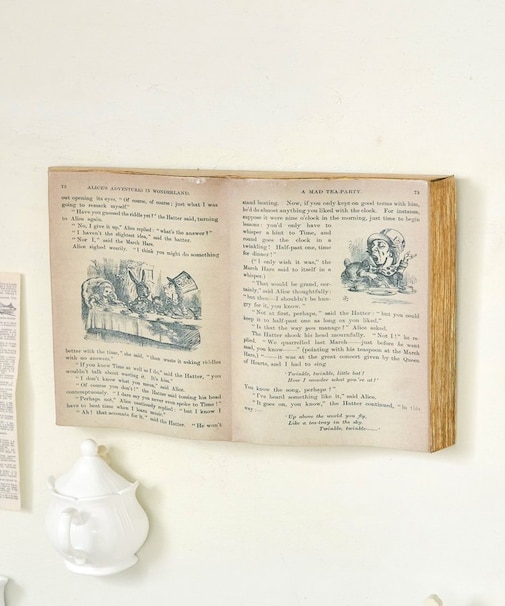 72 ALICE'S ADVENTURES IN WONDERLAND.
out opening its eyes, "Of course, of course; just what I was
going to remark myself."
"Have you guessed the riddle yet?" the Hatter said, turning
to Alice again.
"No, I give it up," Alice replied: "what's the answer?"
"I haven't the slightest idea," said the hatter.
"Nor I," said the March Hare.
Alice sighed wearily. "I think you might do something
better with the time," she said, "than waste it asking riddles
with no answers."
"If you knew Time as well as I do," said the Hatter, "you
wouldn't talk about wasting it. It's him."
"I don't know what you mean," said Alice.
"Of course you don't!" the Hatter said tossing his head
contemptuously. "I dare say you never even spoke to Time!"
"Perhaps not," Alice cautiously replied: "but I know I
have to beat time when I learn music."
"Ah! that accounts for it," said the Hatter. "He won't
A MAD TEA-PARTY. 73
stand beating. Now, if you only kept on good terms with him,
he'd do almost anything you liked with the clock. For instance,
suppose it were nine o'clock in the morning, just time to begin
lessons: you'd only have to
whisper a hint to Time, and
round goes the clock in a
twinkling! Half-past one, time
for dinner!"
("I only wish it was," the
March Hare said to itself in a
whisper.)
"That would be grand, cer-
tainly," said Alice thoughtfully:
"but then—I shouldn't be hun-
gry for it, you know."
"Not at first, perhaps," said the Hatter: "but you could
keep it to half-past one as long as you liked."
"Is that the way you manage?" Alice asked.
The Hatter shook his head mournfully. "Not I!" he re-
plied. "We quarrelled last March——just before he went
mad, you know——" (pointing with his teaspoon at the March
Hare,) "——it was at the great concert given by the Queen
of Hearts, and I had to sing
'Twinkle, twinkle, little bat!
How I wonder what you're at!'
You know the song, perhaps?"
"I've heard something like it," said Alice.
"It goes on, you know," the Hatter continued, "in this
way:—
'Up above the world you fly,
Like a tea-tray in the sky.
Twinkle, twinkle——'